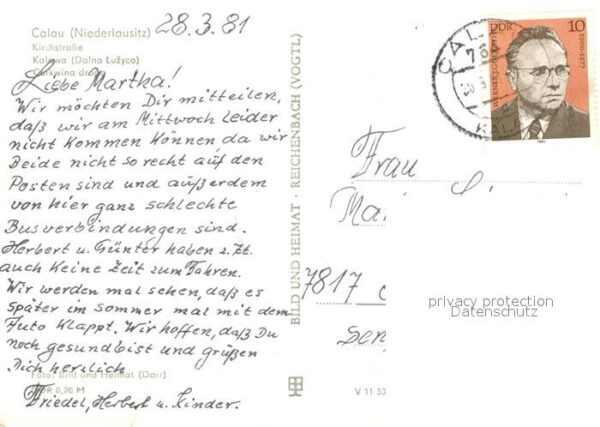 28.3.81
Calau (Niederlausitz)
Kirchstraße
Kalawa (Dolna Łużyca)
Liebe Martha!
Wir möchten Dir mitteilen,
daß wir am Mittwoch leider
nicht kommen können da wir
Beide nicht so recht auf den
Posten sind und außerdem
von hier ganz schlechte
Busverbindungen sind.
Herbert u. Günter haben z. Zt.
auch keine Zeit zum Fahren.
Wir werden mal sehen, daß es
später im Sommer mal mit dem
Auto klappt. Wir hoffen, daß Du
noch gesund bist und grüßen
Dich herzlich
Foto: Bild und Heimat (Darr)
0,20 M
Friedel, Herbert u. Kinder.
BILD UND HEIMAT · REICHENBACH (VOGTL)
V 11 53
DDR 10
1900-1977
CAL
Frau
7817
privacy protection
Datenschutz